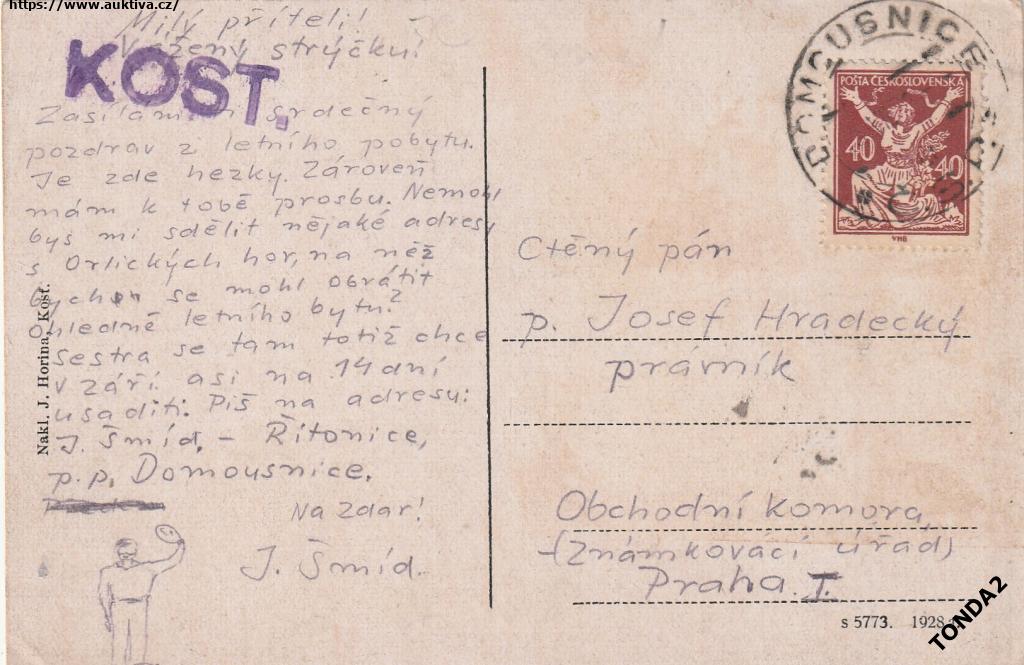 https://www.auktiva.cz/
Milý příteli!
Vážený strýčku!
KOST.
Zasílám srdečný
pozdrav z letního pobytu.
Je zde hezky. Zároveň
mám k tobě prosbu. Nemohl
bys mi sdělit nějaké adresy
s Orlických hor, na něž
bychom se mohl obrátit
Ohledně letního bytu?
Sestra se tam totiž chce
v září asi na 14 dní
usaditi. Piš na adresu:
J. Šmíd, - Řitonice,
p.p. Domousnice.
Na zdar!
J. Šmíd.
Nakl. J. Horina, Kost.
DOMOUSNICE
POŠTA ČESKOSLOVENSKÁ
40 40
VHB
Ctěný pán
p. Josef Hradecký
právník
Obchodní Komora
(Známkovácí úřad)
Praha I.
s 5773. 1928
TONDA2